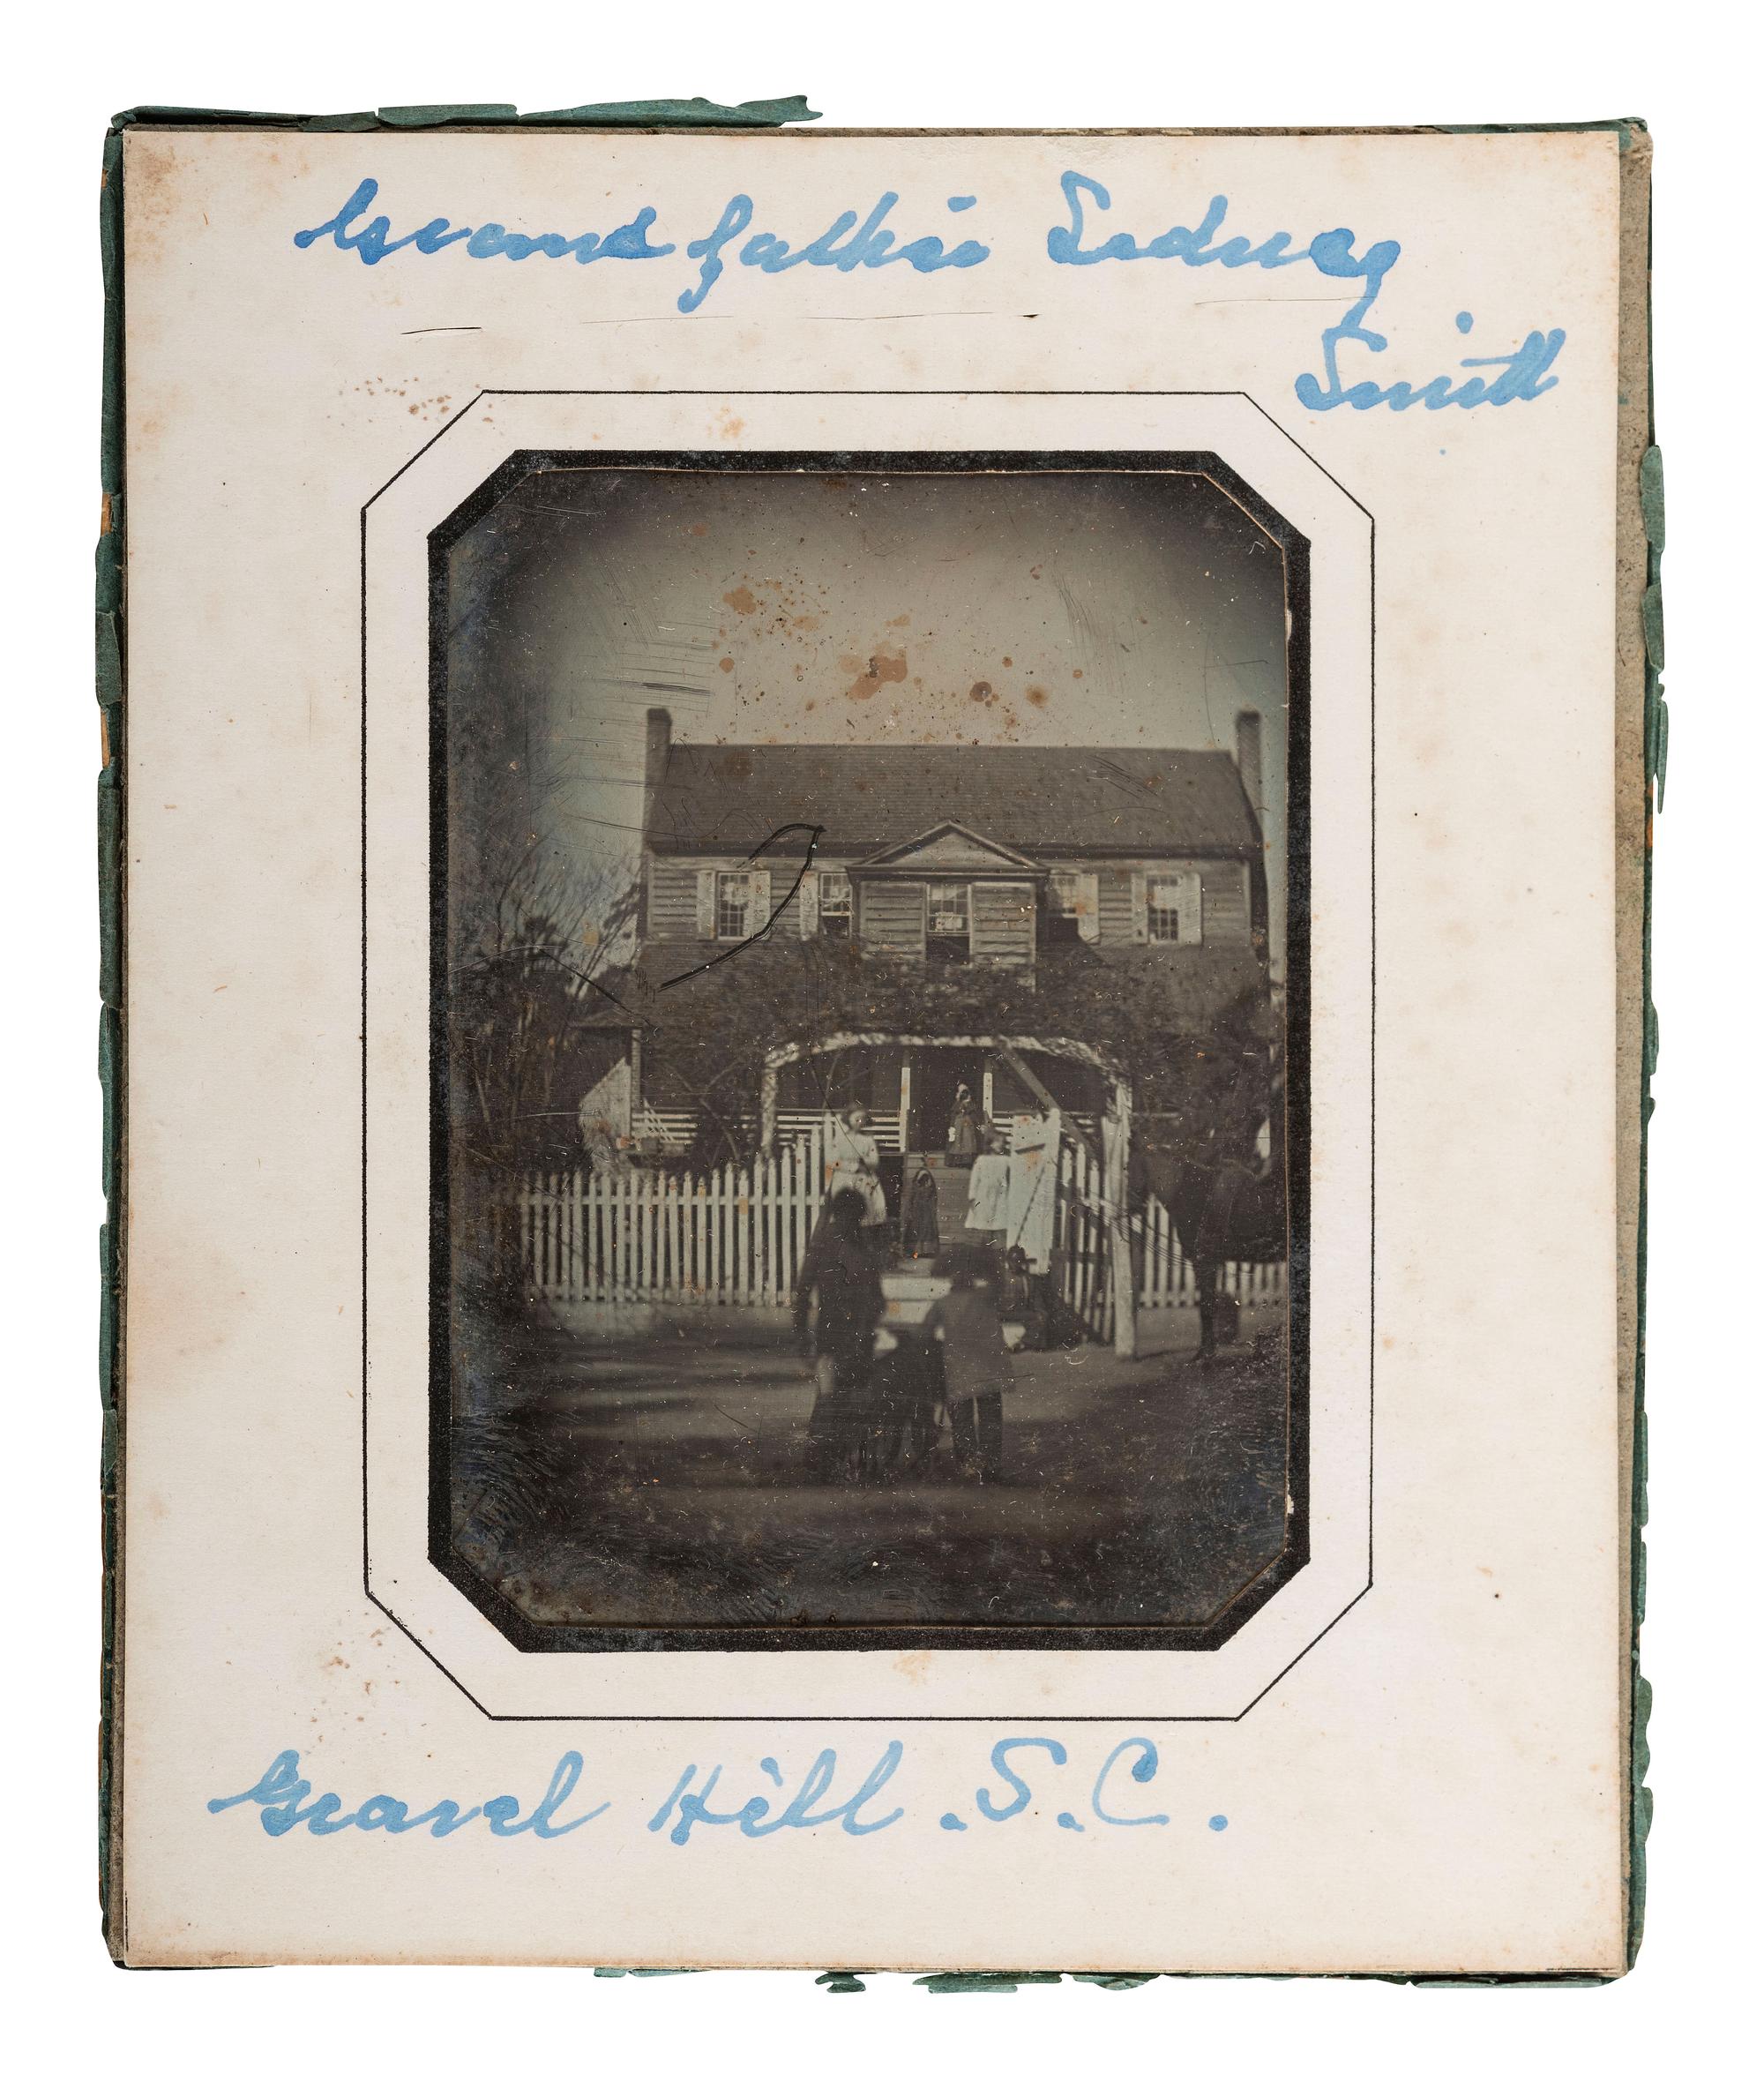 Grandfather Sidney
Smith
Gravel Hill . S.C.